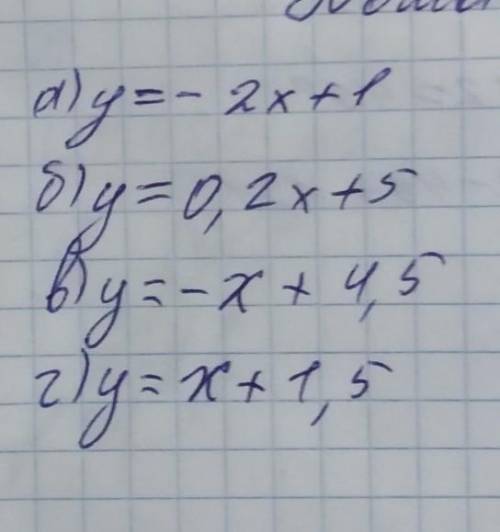 а) y = - 2x + 1
б) y = 0,2x + 5
в) y = -x + 4,5
г) y = x + 1,5